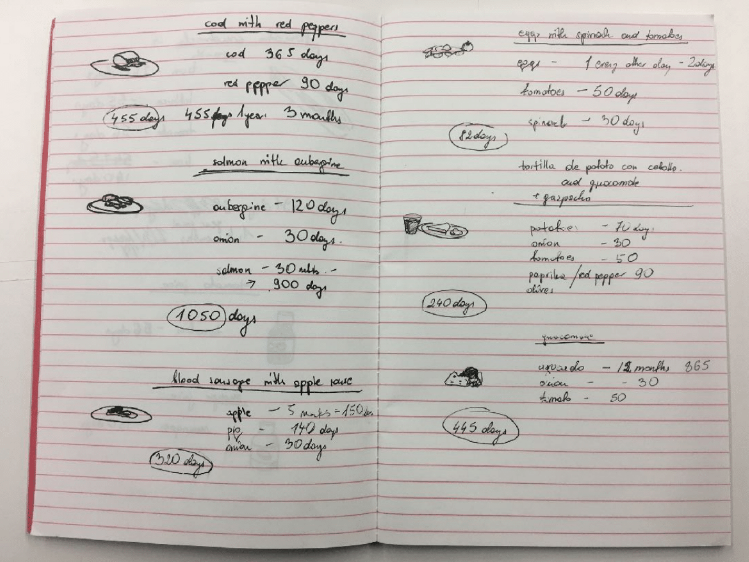 cod with red peppers
cod 365 days
red pepper 90 days
455 days 455 days 1 year 3 months
salmon with aubergine
aubergine - 120 days
onion - 30 days.
salmon - 30 mths. -
→ 900 days
1050 days
blood sausage with apple sauce
apple - 5 months = 150 days
pig - 140 days
onion - 30 days
320 days
eggs with spinach and tomatoes
eggs - 1 every other day - 2 days
tomatoes - 50 days
spinach - 30 days
82 days
tortilla de patata con cebolla
and guacamole
+ gazpacho
potatoes - 70 days.
onion - 30
tomatoes - 50
paprika / red pepper 90
olives
240 days
guacamole
avocado - 12 months 365
onion - - 30
tomato - 50
445 days